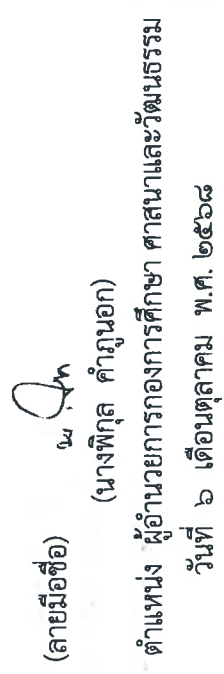 (ลายมือชื่อ)
(นางพิกุล คำภูนอก)
ตำแหน่ง ผู้อำนวยการกองการศึกษา ศาสนาและวัฒนธรรม
วันที่ ๖ เดือนตุลาคม พ.ศ. ๒๕๖๘